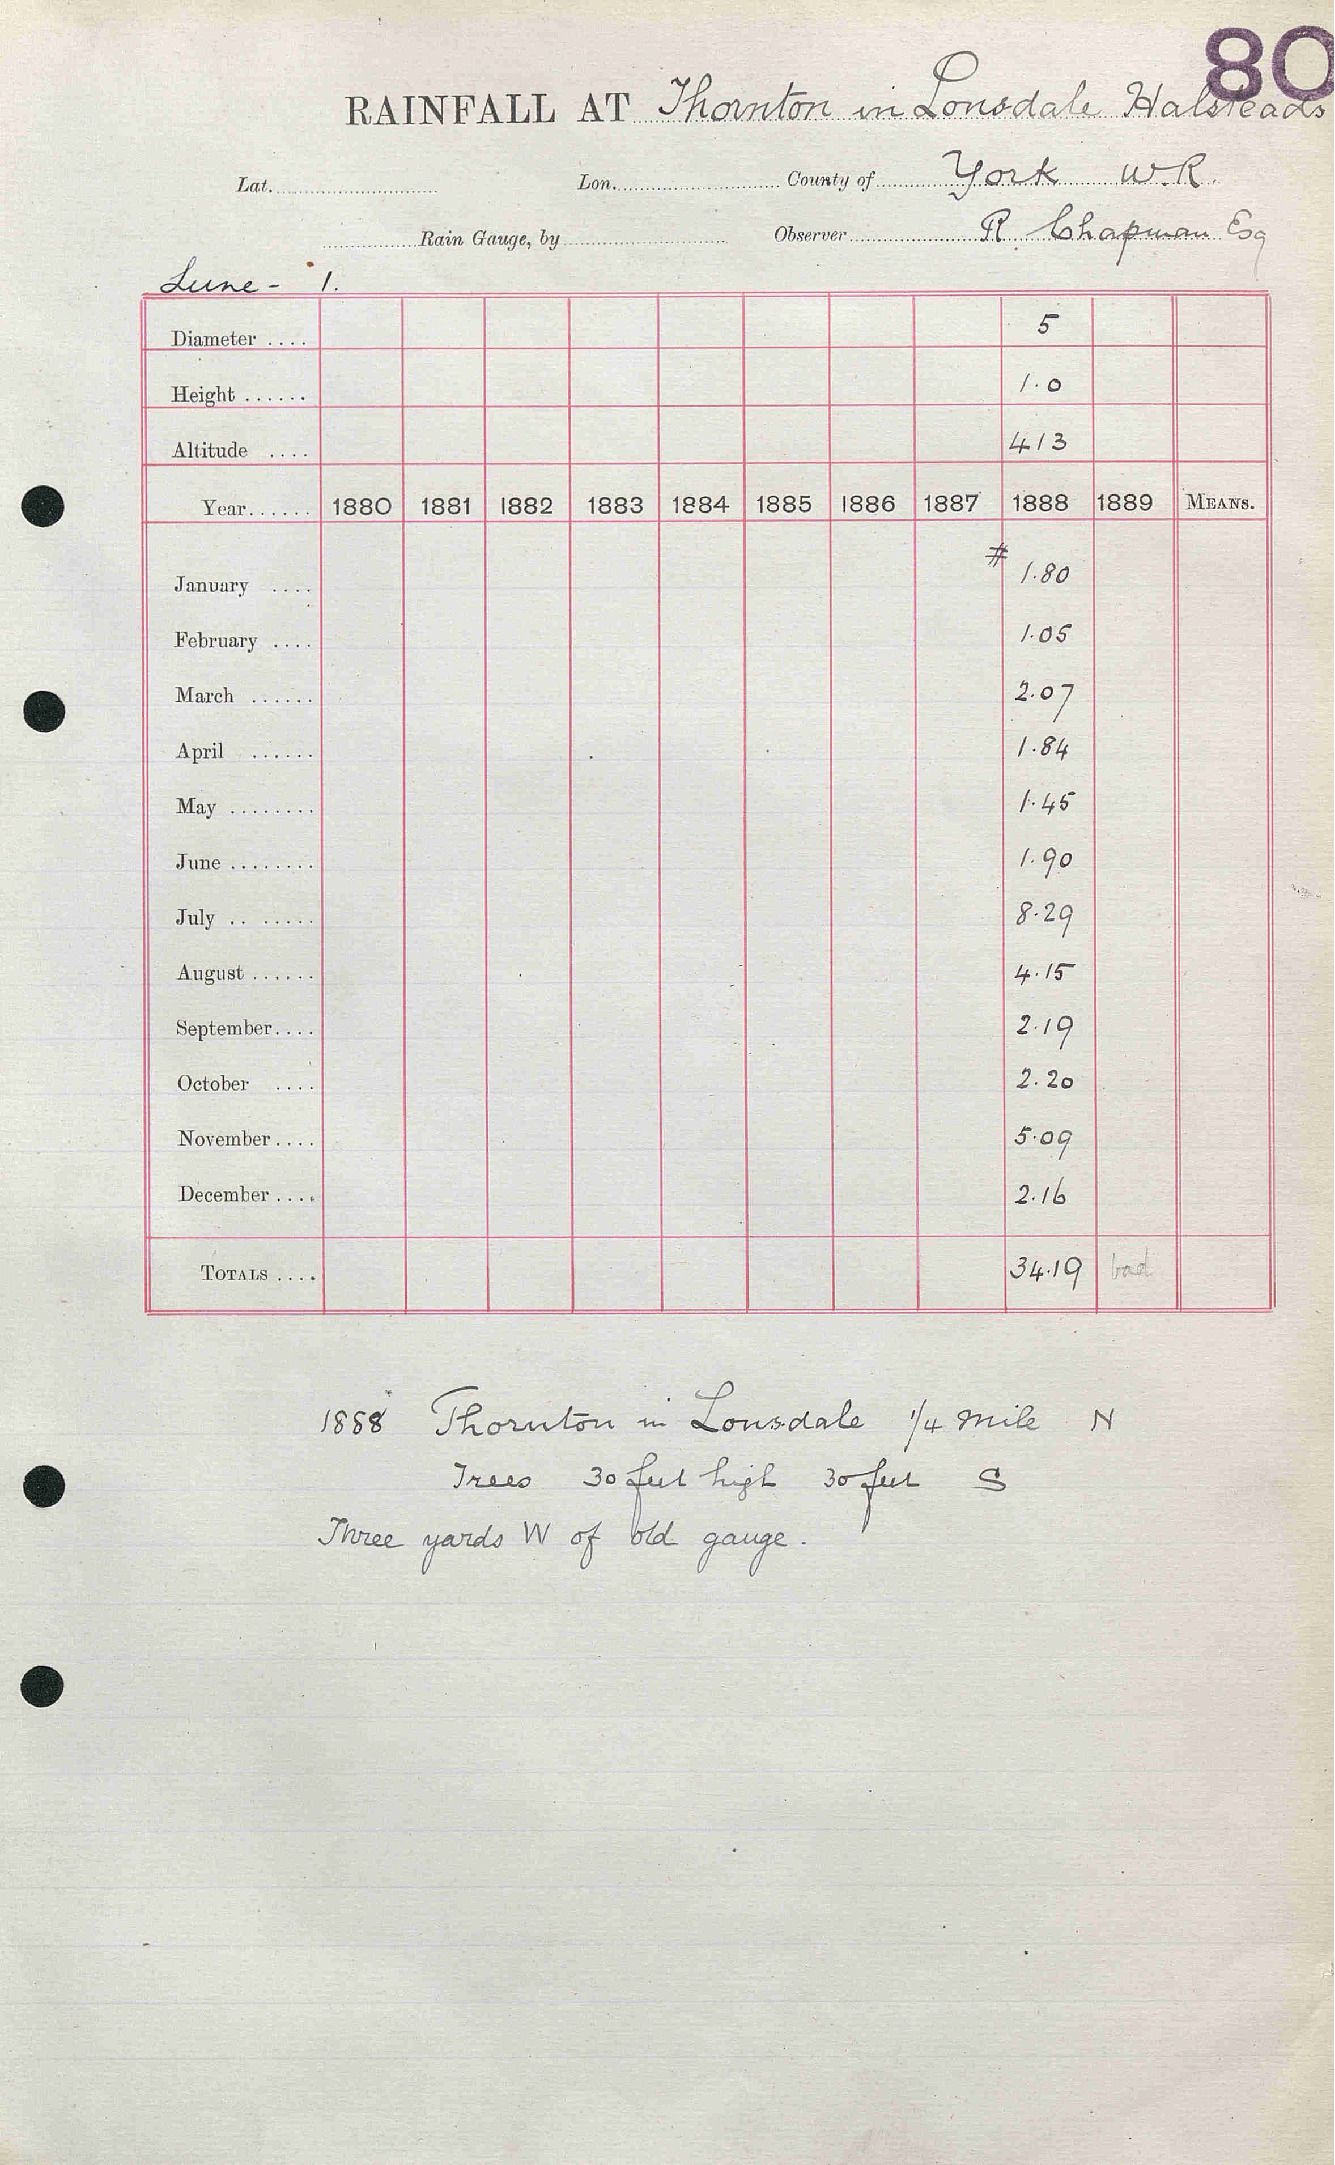 80
RAINFALL AT Thornton in Lonsdale Halsteads
Lat. Lon. County of York W.R.
Rain Gauge, by Observer R. Chapman Esq
Lune - 1.
Diameter .... 5
Height ...... 1.0
Altitude .... 413
Year...... 1880 1881 1882 1883 1884 1885 1886 1887 1888 1889 MEANS.
January .... # 1.80
February .... 1.05
March ...... 2.07
April ...... 1.84
May ........ 1.45
June ........ 1.90
July .. ...... 8.29
August ...... 4.15
September.... 2.19
October .... 2.20
November.... 5.09
December.... 2.16
TOTALS .... 34.19 bad
1888 Thornton in Lonsdale 1/4 mile N
Trees 30 feet high 30 feet S
Three yards W of old gauge.